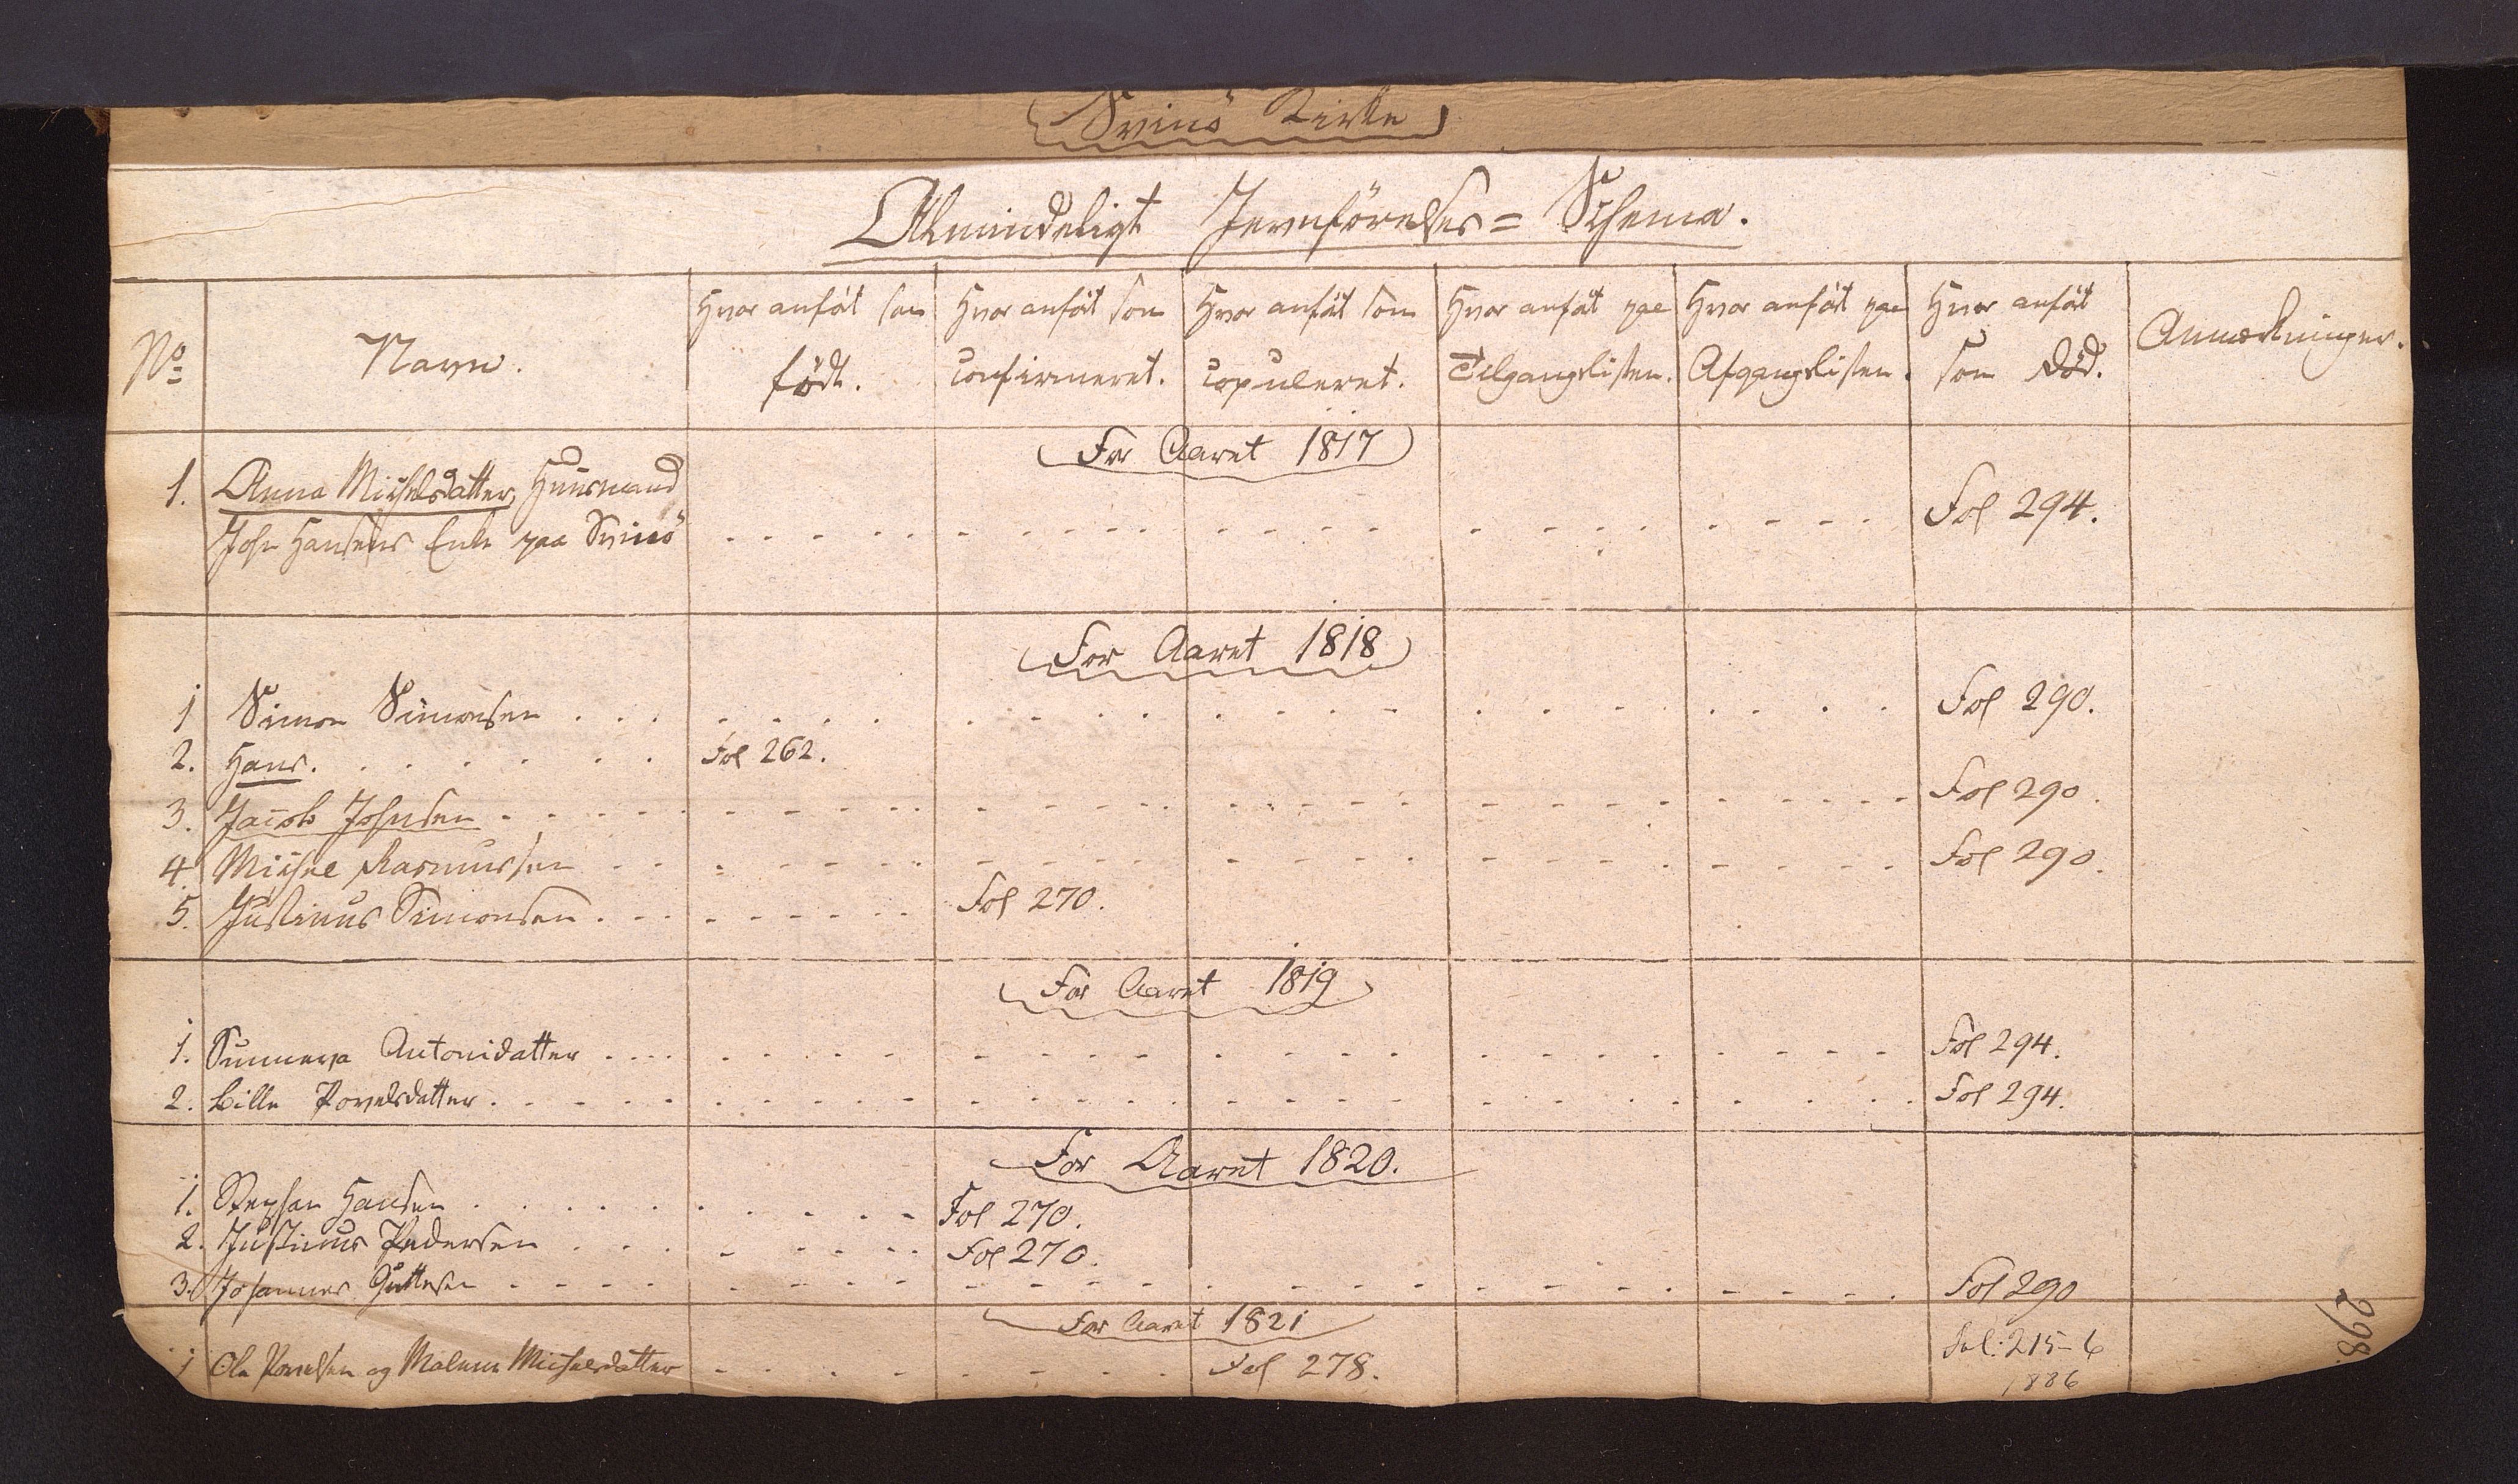 Svinö Kirke
Almindeligt Jevnförelses= Schema.
No
Navn.
Hvor anfört som
födt.
Hvor anfört som
confirmeret.
Hvor anfört som
copuleret.
Hvor anfört paa
Tilgangslisten.
Hvor anfört paa
Afgangslisten.
Hvor anfört
som död.
Anmærkninger.
For Aaret 1817
1. Anna Michelsdatter, Huusmand
Joh. Hansens Enke paa Svinö Fol 294.
For Aaret 1818
1 Simon Simonsen Fol 290.
2. Hans. Fol 262.
3. Jacob Johnsen Fol 290.
4. Michel Rasmussen Fol 290.
5. Justinus Simonsen Fol 270.
For Aaret 1819
1. Sunneva Antonidatter Fol 294.
2. Bille Povelsdatter Fol 294.
For Aaret 1820.
1. Stephan Hansen Fol 270.
2. Justinus Pedersen Fol 270.
3. Johannes Guttesen Fol 290
For Aaret 1821
1 Ole Povelsen og Malene Michelsdatter Fol 278.
Fol: 215-6
1886
298.